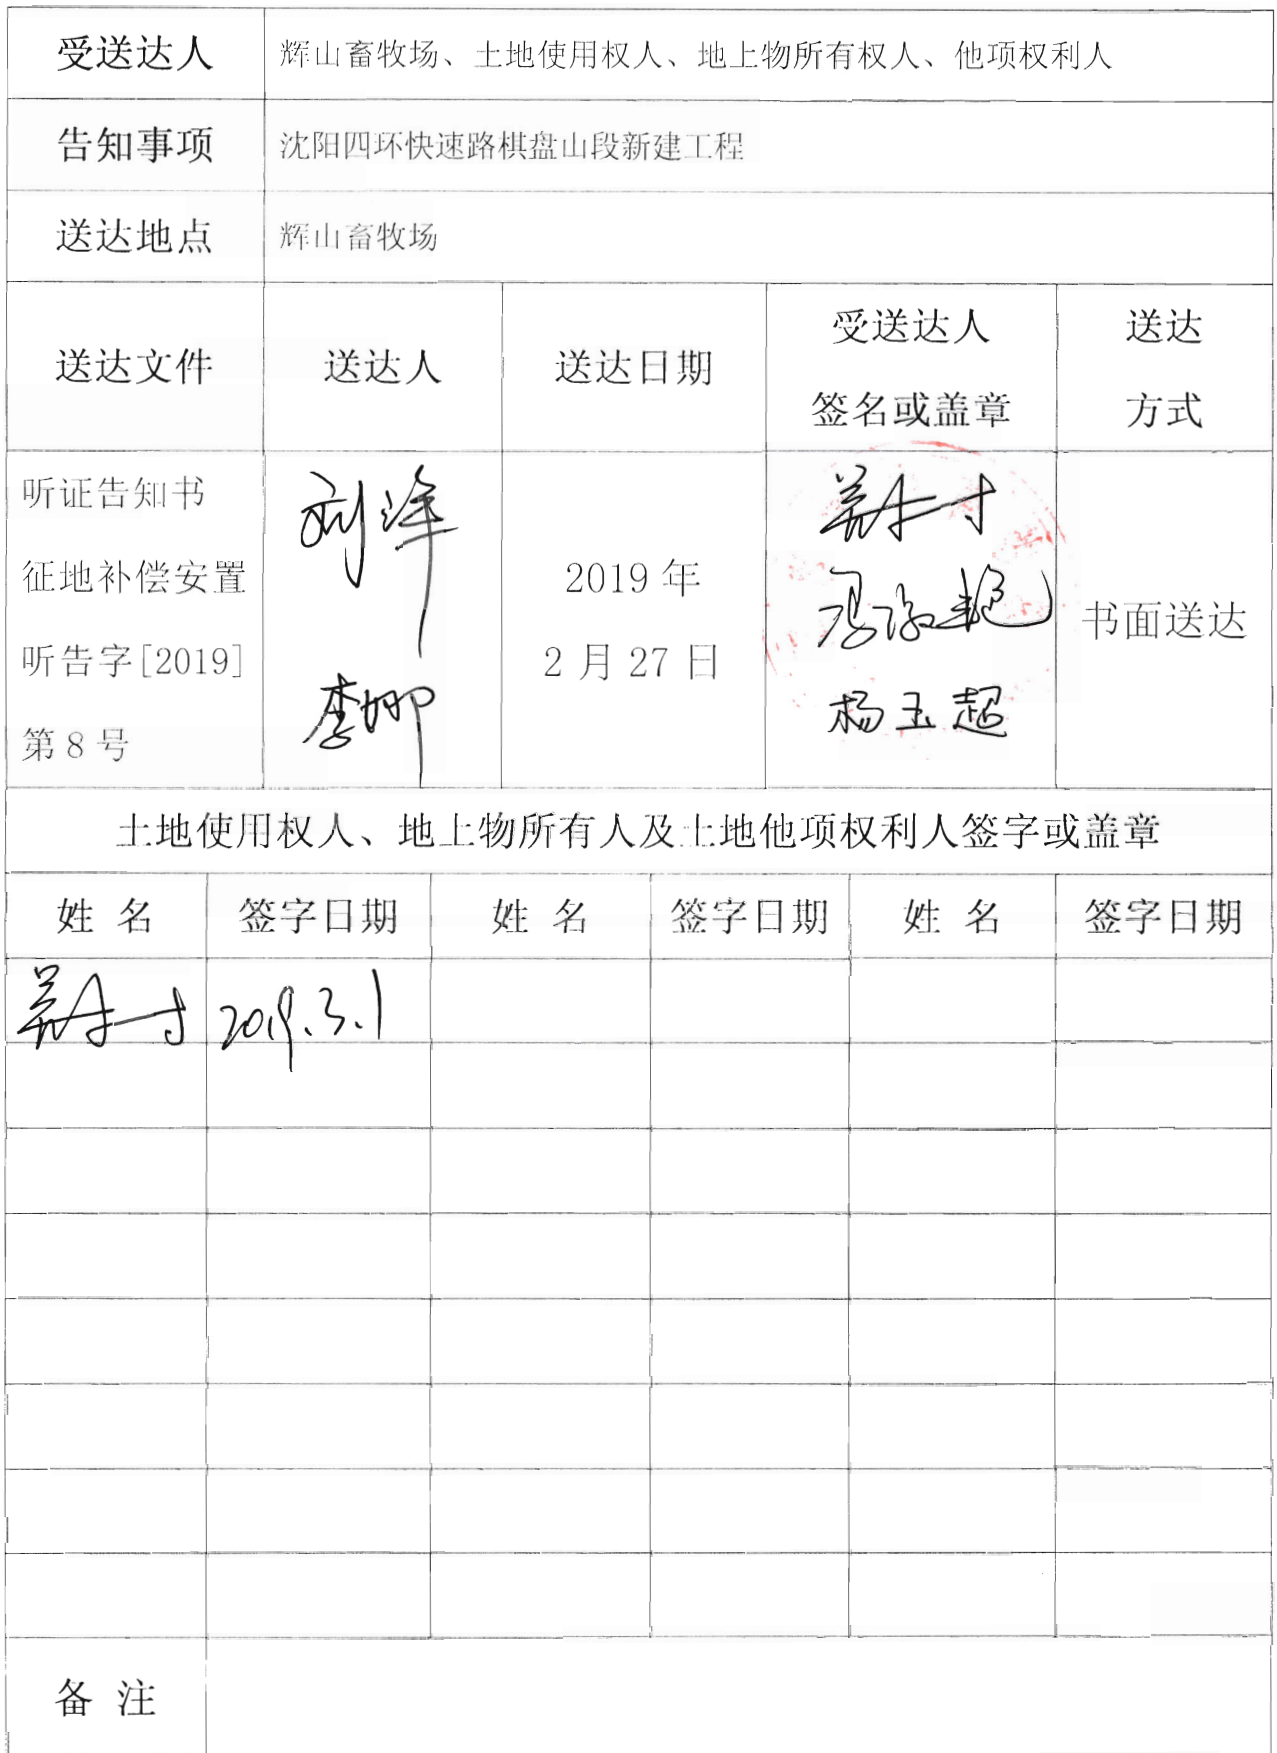 受送达人 辉山畜牧场、土地使用权人、地上物所有权人、他项权利人
告知事项 沈阳四环快速路棋盘山段新建工程
送达地点 辉山畜牧场
送达文件 送达人 送达日期 受送达人 签名或盖章 送达 方式
听证告知书
征地补偿安置
听告字[2019]
第8号
刘洋
李娜
2019年
2月27日
杨玉超
书面送达
土地使用权人、地上物所有人及土地他项权利人签字或盖章
姓 名 签字日期 姓 名 签字日期 姓 名 签字日期
2019.3.1
备 注